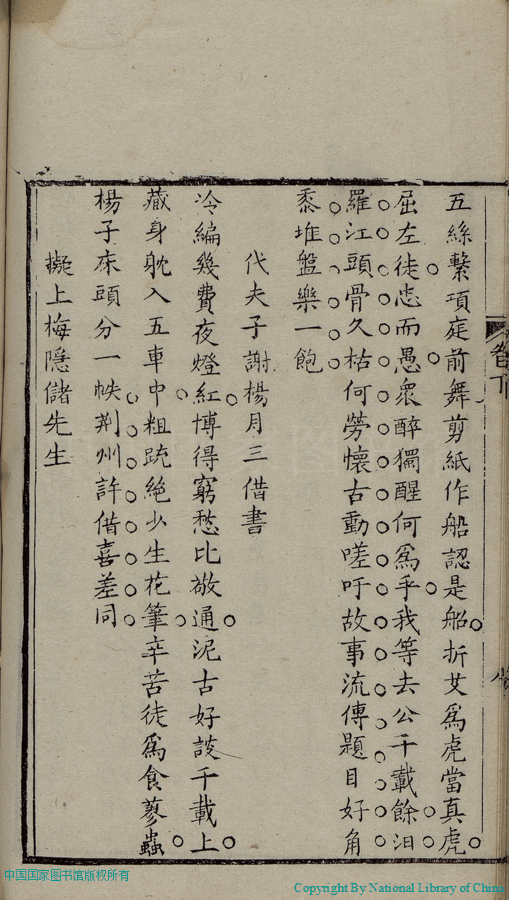 五絲繫項庭前舞剪紙作船認是船折艾爲虎當真虎
屈左徒忠而愚衆醉獨醒何爲乎我等去公千載餘汨
羅江頭骨久枯何勞懷古動嗟吁故事流傳題目好角
黍堆盤樂一飽
代夫子謝楊月三借書
冷編幾費夜燈紅博得窮愁比敬通泥古好談千載上
藏身躭入五車中粗疏絶少生花筆辛苦徒爲食蓼蟲
楊子床頭分一帙荆州許借喜差同
擬上梅隱儲先生
卷下
中国国家图书馆版权所有
Copyright By National Library of China